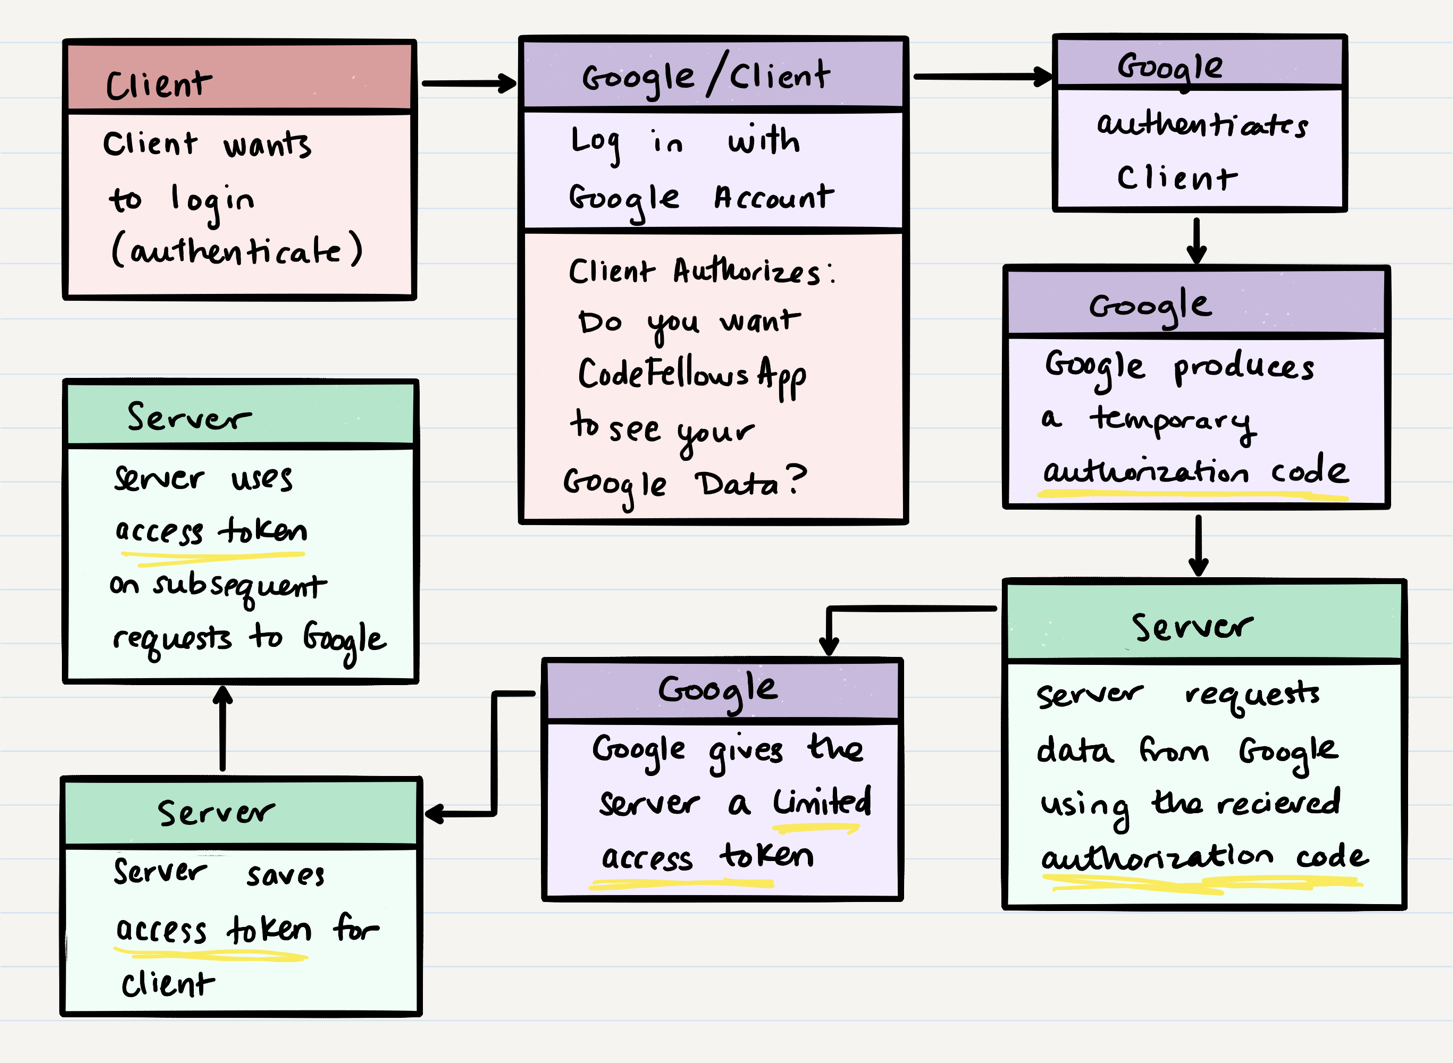 Client
Client wants
to login
(authenticate)
Google/Client
Log in with
Google Account
Client Authorizes:
Do you want
CodeFellows App
to see your
Google Data?
Google
authenticates
Client
Google
Google produces
a temporary
authorization code
Server
server requests
data from Google
using the recieved
authorization code
Google
Google gives the
server a limited
access token
Server
Server saves
access token for
client
Server
server uses
access token
on subsequent
requests to Google